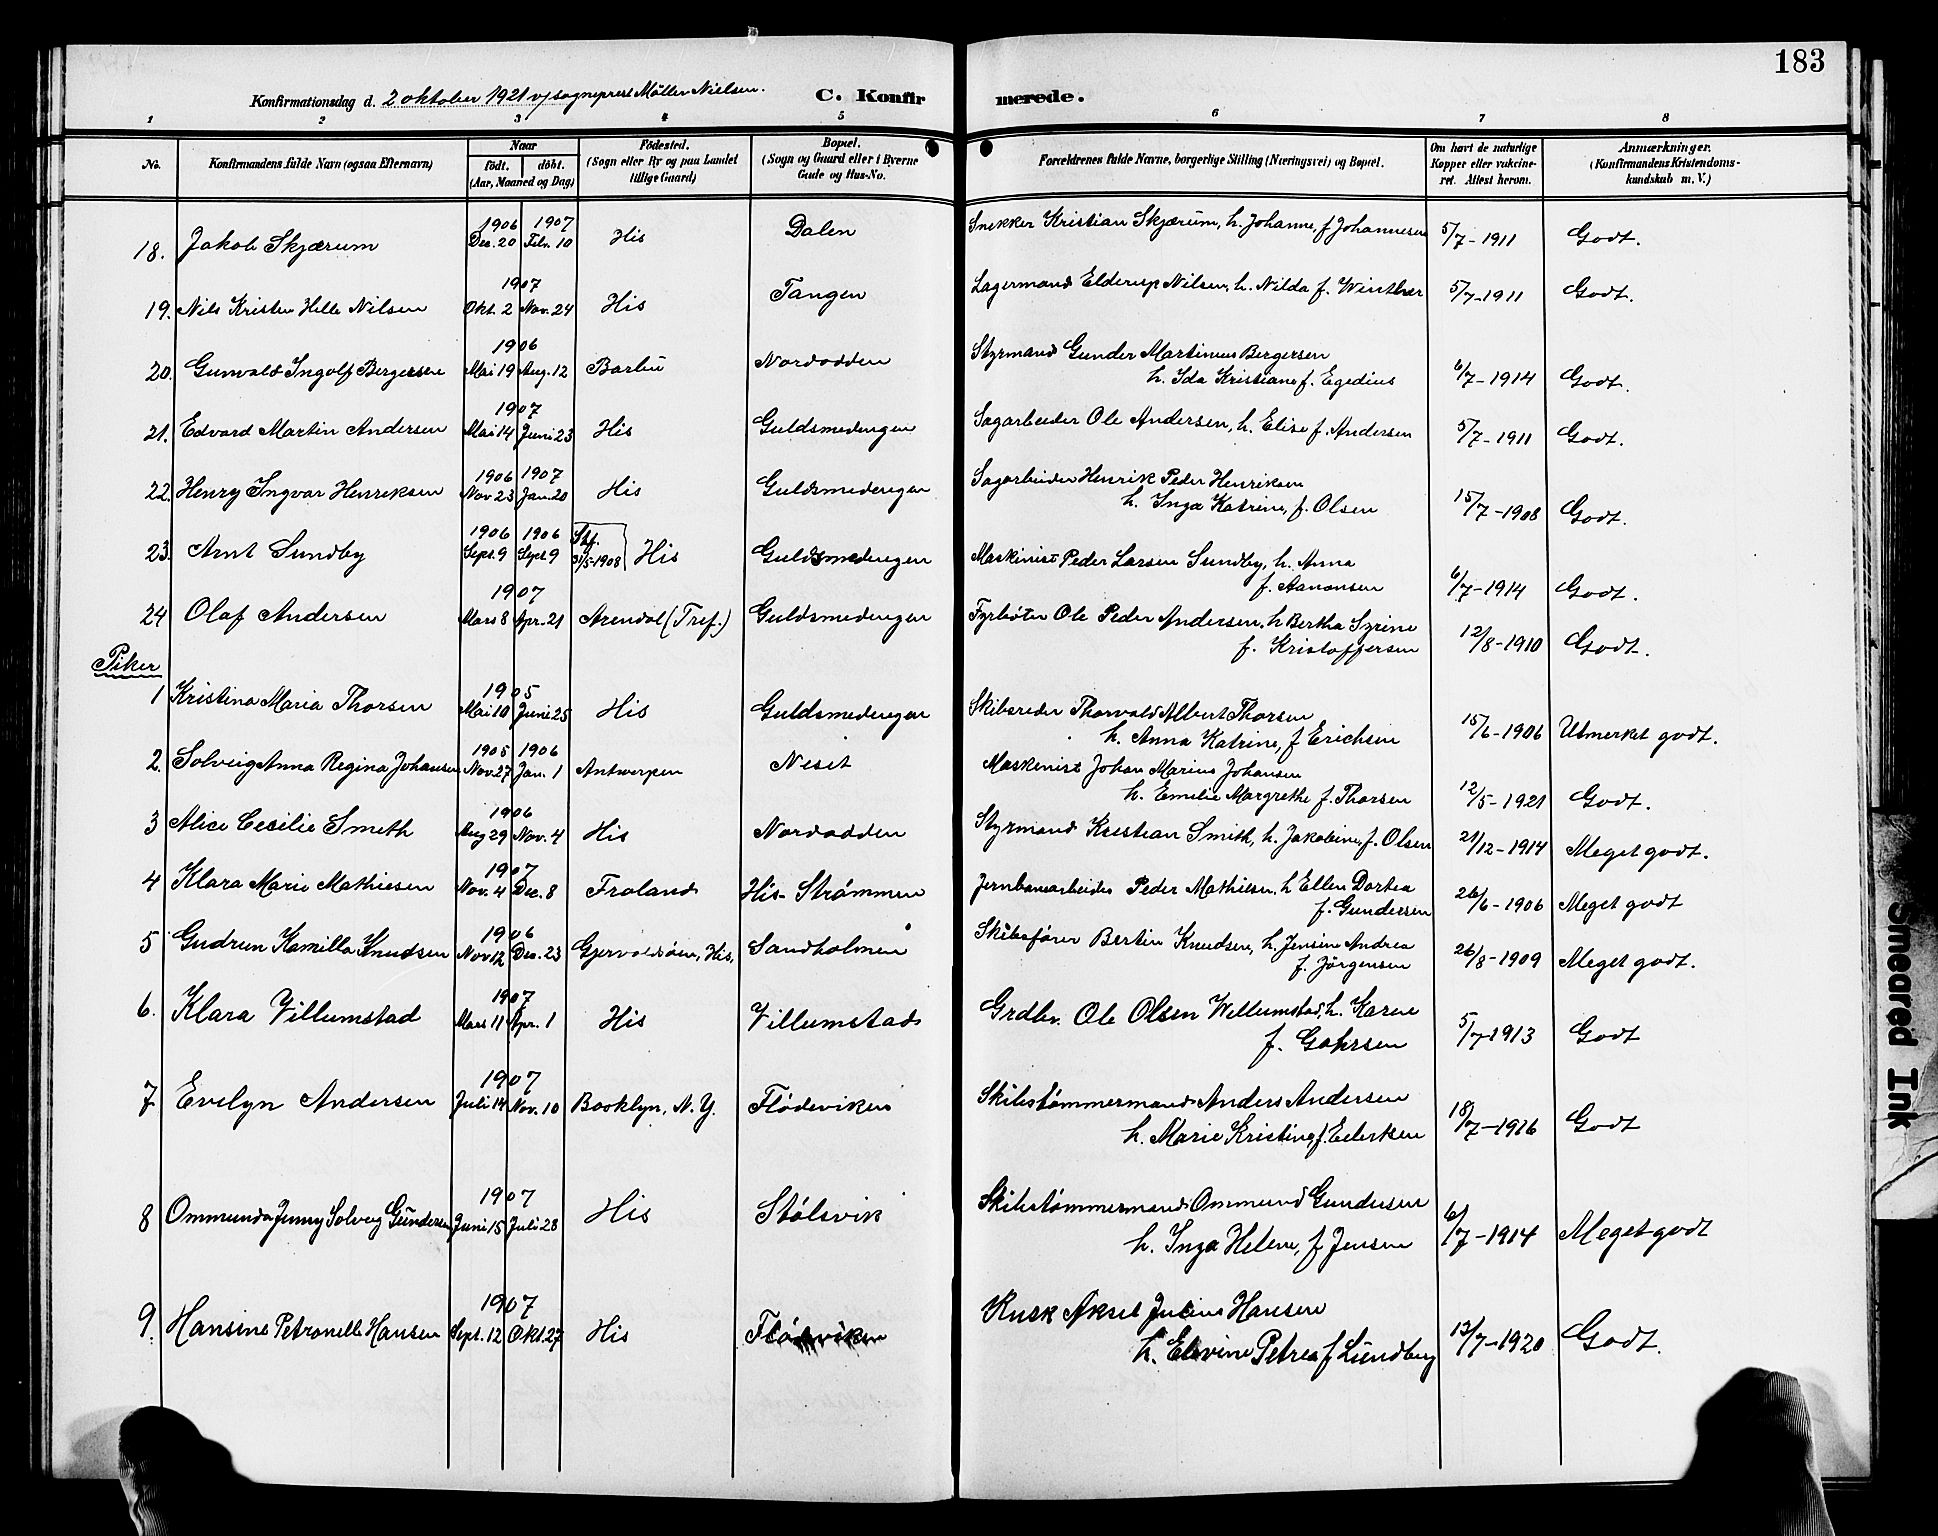 183
Konfirmationsdag d. 2 oktober 1921 v/ sogneprest Möller Nielsen. C. Konfirmerede.
1 2 3 4 5 6 7 8
No. Konfirmandens fulde Navn (ogsaa Efternavn) Naar født. døbt. (Aar, Maaned og Dag) Fødested. (Sogn eller By og paa Landet tillige Gaard) Bopæl. (Sogn og Gaard eller i Byerne Gade og Hus-No. Forældrenes fulde Navne, borgerlige Stilling (Næringsvei) og Bopæl. Om havt de naturlige Kopper eller vaksineret. Attest herom. Anmærkninger. (Konfirmandens Kristendomskundskab m. V.)
18. Jakob Skjærum 1906 Des. 20 1907 Febr. 10 His Dalen Snekker Kristian Skjærum, h. Johanne, f Johannesen 5/7-1911 Godt.
19. Nils Kristen Helle Nilsen 1907 Okt. 2 Nov. 24 His Tangen Lagermand Elderup Nilsen, h. Nilda f. Winther 5/7-1911 Godt.
20. Gunvald Ingolf Bergersen 1906 Mai 19 Aug. 12 Barbu Nordodden Styrmand Gunder Martinius Bergersen
h. Ida Kristiane f. Egedius 6/7-1914 Godt.
21. Edvard Martin Andersen 1907 Mai 14 Juni 23 His Guldsmedengen Sagarbeider Ole Andersen, h. Elise f. Andersen 5/7-1911 Godt.
22. Henry Ingvar Henriksen 1906 Nov. 23 1907 Jan. 20 His Guldsmedengen Sagarbeider Henrik Peder Henriksen
h. Inga Katrine, f. Olsen 15/7-1908 Godt.
23. Arnt Sundby 1906 Sept. 9 1906 Sept. 9 Stf. 31/5-1908 His Guldsmedengen Maskinist Peder Larsen Sundby, h. Anna
f. Aanonsen 6/7-1914 Godt.
24 Olaf Andersen 1907 Mars 8 Apr. 21 Arendal (Tref.) Guldsmedengen Fyrbøter Ole Peder Andersen, h Bertha Syrine
f. Kristoffersen 12/8-1910 Godt.
Piker
1 Kristina Maria Thorsen 1905 Mai 10 Juni 25 His Guldsmedengen Skibsreder Thorvald Albert Thorsen
h. Anna Katrine, f Erichsen 15/6-1906 Utmerket godt.
2. Solveig Anna Regina Johansen 1905 Nov. 27 1906 Jan. 1 Antwerpen Neset Maskenist Johan Marius Johansen
h. Emelie Margrethe f. Thorsen 12/5-1921 Godt.
3 Alice Cecilie Smith 1906 Aug 29 Nov. 4 His Nordodden Styrmand Kristian Smith, h. Jakobine, f. Olsen 21/12-1914 Meget godt.
4 Klara Marie Mathiesen 1907 Nov. 4 Dec. 8 Froland His-Strømmen Jernbanearbeider Peder Mathiesen, h Ellen Dortea
f. Gundersen 26/6-1906 Meget godt
5 Gudrun Kamilla Knudsen 1906 Nov 12 Des. 23 Gjervoldsøien, His, Sandholmen Skibsfører Bertin Knudsen, h. Jensine Andrea
f. Jørgensen 26/8-1909 Meget godt.
6. Klara Villumstad 1907 Mars 11 Apr. 1 His Villumstad Grdbr. Ole Olsen Willumstad, h. Karen
f. Gahrsen 5/7-1913 Godt
7 Evelyn Andersen 1907 Juli 14 Nov. 10 Booklyn, N. Y. Flödeviken Skibstømmermand Anders Andersen
h. Marie Kristine, f. Eilertsen 18/7-1916 Godt
8 Ommunda Jenny Solveig Gundersen 1907 Juni 15 Juli 28 His Stølsvik Skibstømmermand Ommund Gundersen
h. Inga Helene, f Jensen 6/7-1914 Meget godt
9. Hansine Petronelle Hansen 1907 Sept. 12 Okt. 27 His Flödeviken Kusk Aksel Julius Hansen
h. Elevine Petrea f Lundberg 13/7-1920 Godt.
Smeared Ink